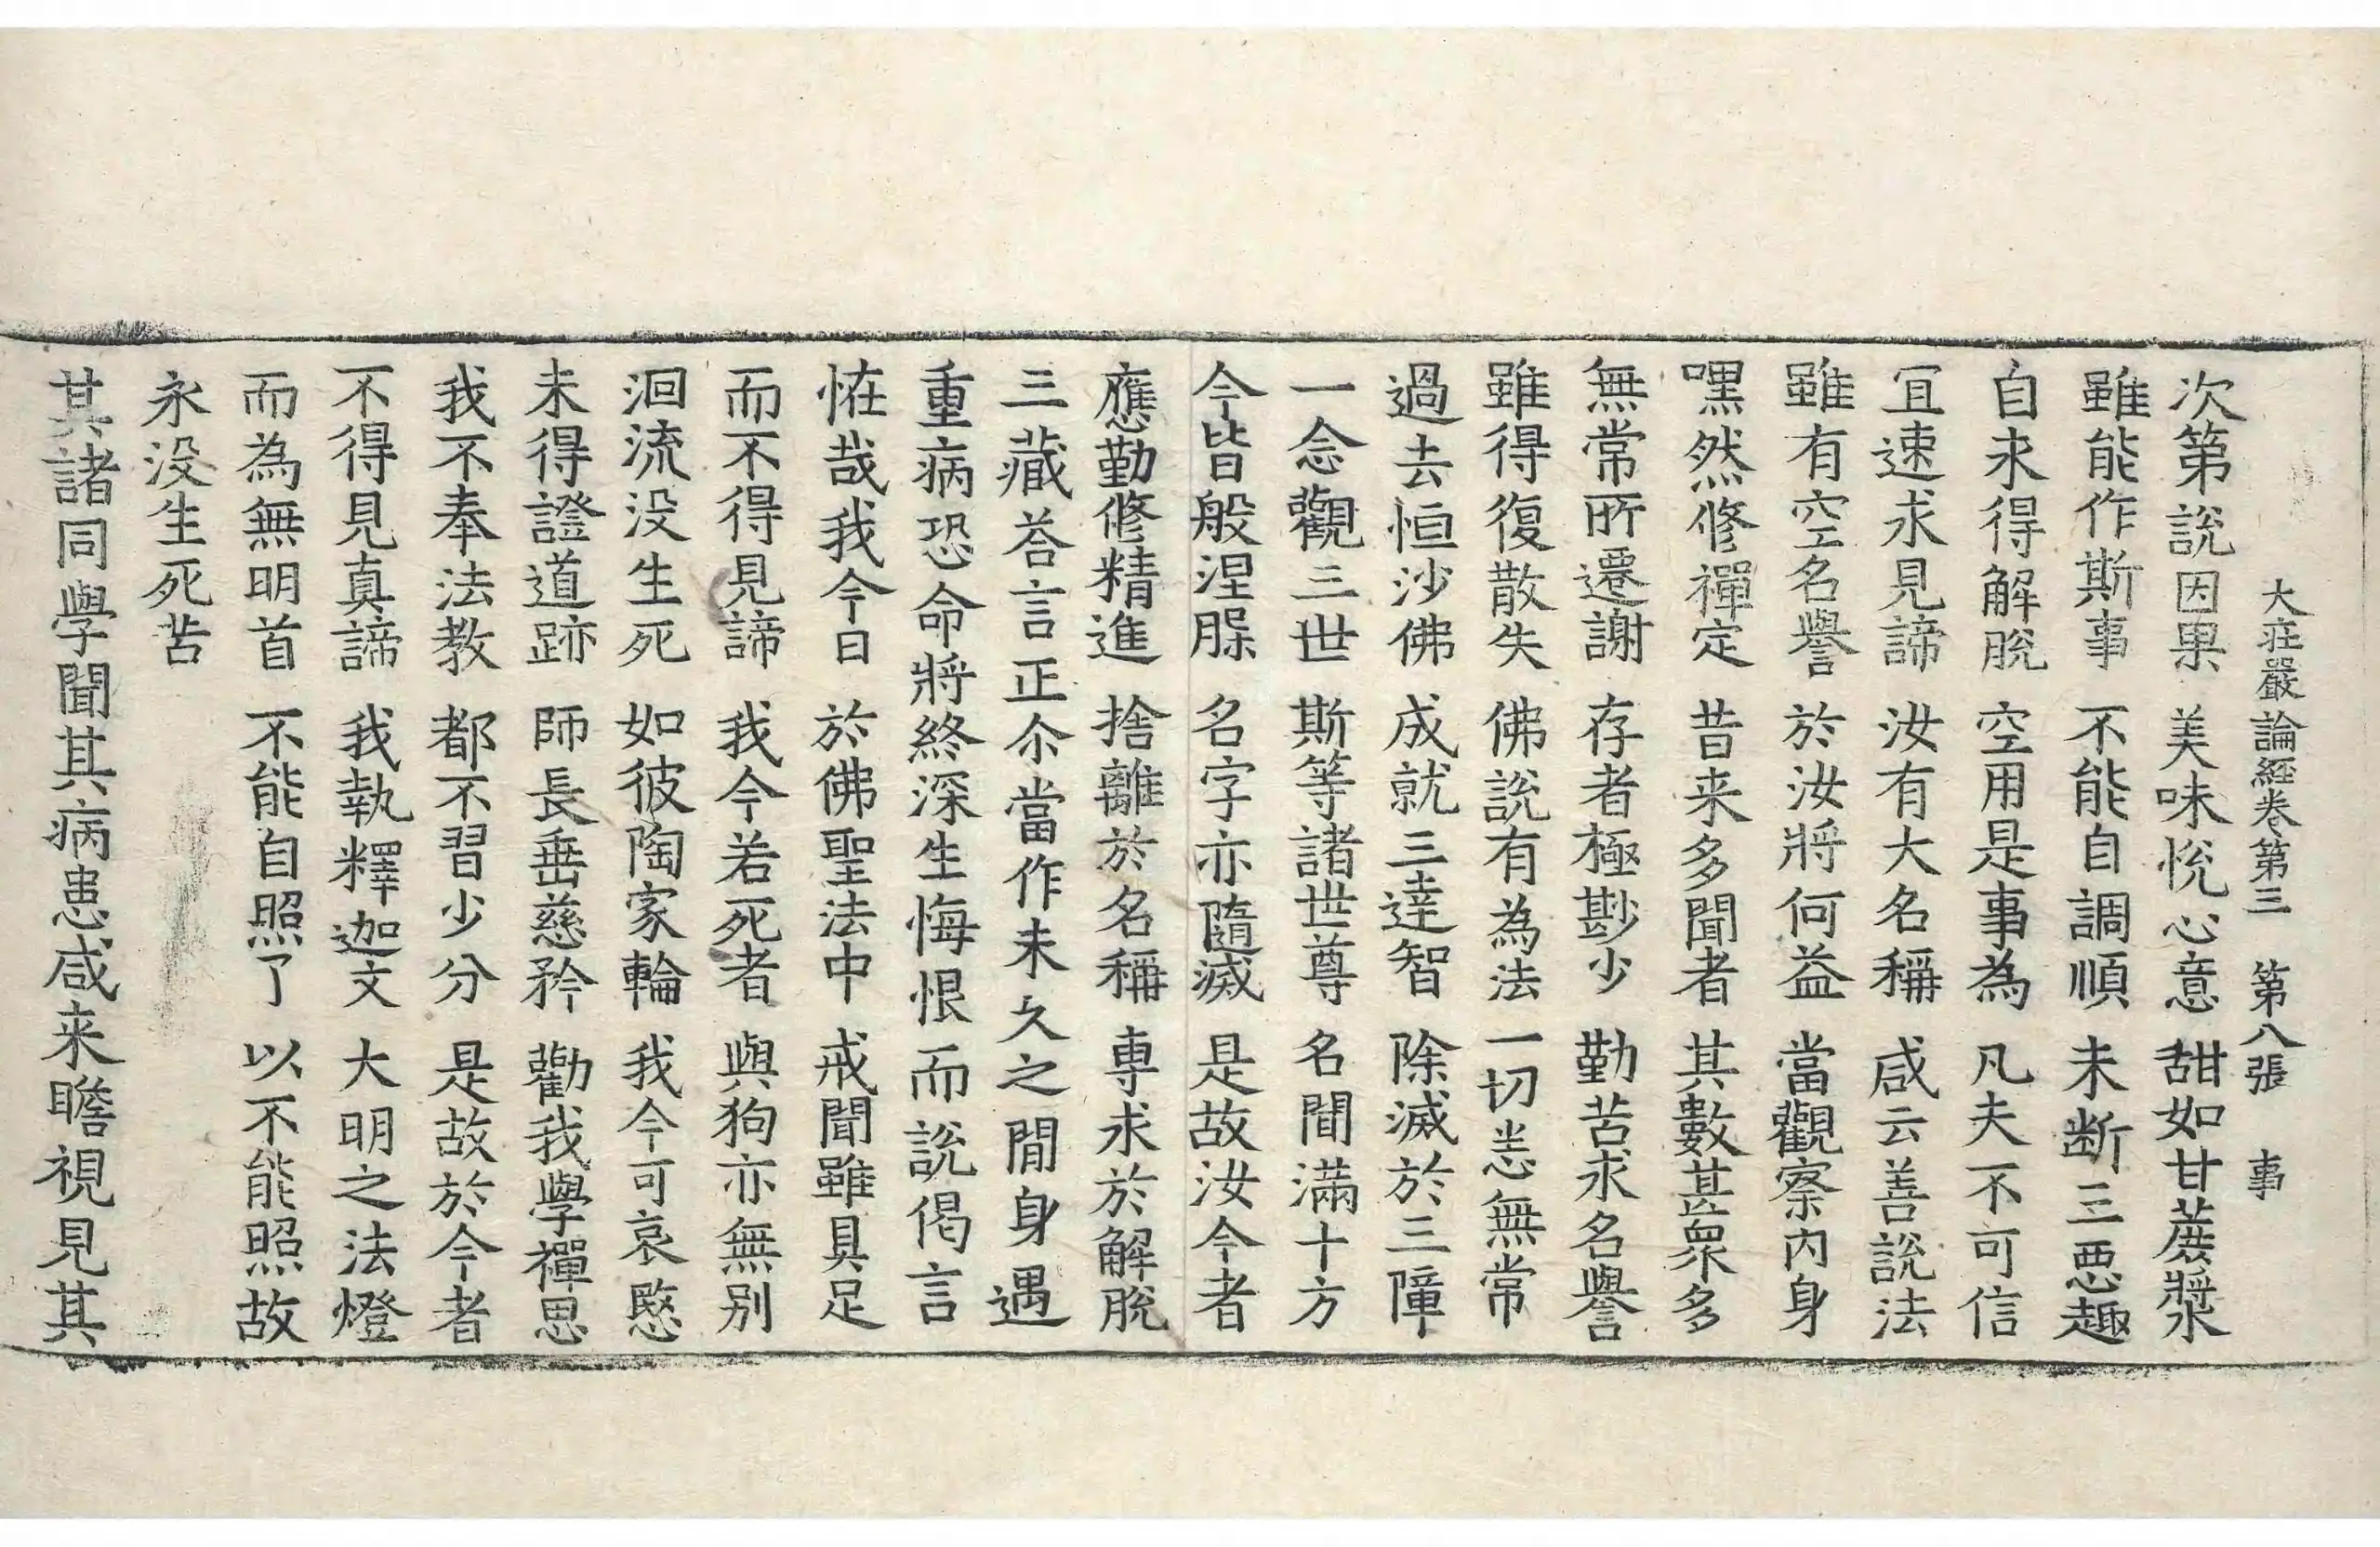 大莊嚴論經卷第三 第八張 事
次第說因果 美味悅心意 甜如甘蔗漿
雖能作斯事 不能自調順 未斷三惡趣
自未得解脫 空用是事為 凡夫不可信
宜速求見諦 汝有大名稱 咸云善說法
雖有空名譽 於汝將何益 當觀察內身
嘿然修禪定 昔来多聞者 其數甚眾多
無常所遷謝 存者極尠少 勤苦求名譽
雖得復散失 佛說有為法 一切恙無常
過去恒沙佛 成就三達智 除滅於三障
一念觀三世 斯等諸世尊 名聞滿十方
今皆般涅槃 名字亦隨滅 是故汝今者
應勤修精進 捨離於名稱 專求於解脫
三藏荅言正尒當作未久之閒身遇
重病恐命將終深生悔恨而說偈言
恠哉我今日 於佛聖法中 戒聞雖具足
而不得見諦 我今若死者 與狗亦無別
洄流没生死 如彼陶家輪 我今可哀愍
未得證道跡 師長垂慈矜 勸我學禪思
我不奉法教 都不習少分 是故於今者
不得見真諦 我執釋迦文 大明之法燈
而為無明首 不能自照了 以不能照故
永没生死苦
其諸同學聞其病患咸来瞻視見其